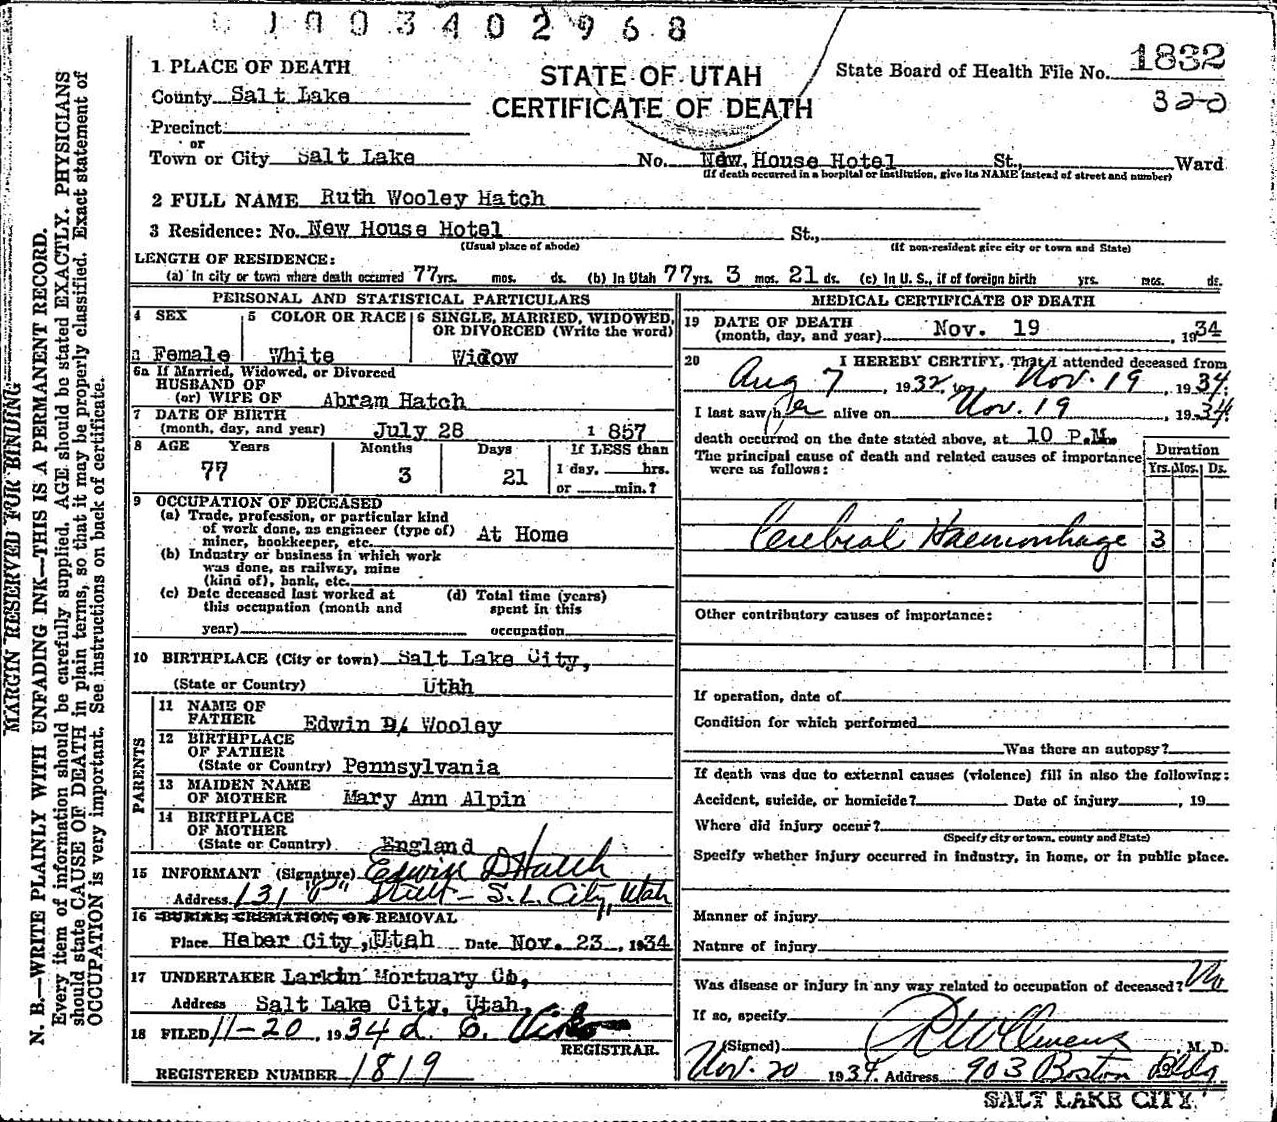 0 1 0 0 3 4 0 2 9 6 8
1 PLACE OF DEATH
STATE OF UTAH
CERTIFICATE OF DEATH
State Board of Health File No. 1832
320
County Salt Lake
Precinct
or
Town or City Salt Lake No. New House Hotel St., Ward
(If death occurred in a hospital or institution, give its NAME instead of street and number)
2 FULL NAME Ruth Wooley Hatch
3 Residence: No. New House Hotel St.,
(Usual place of abode) (If non-resident give city or town and State)
LENGTH OF RESIDENCE:
(a) In city or town where death occurred 77 yrs. mos. ds. (b) In Utah 77 yrs. 3 mos. 21 ds. (c) In U. S., if of foreign birth yrs. mos. ds.
PERSONAL AND STATISTICAL PARTICULARS
4 SEX
Female
5 COLOR OR RACE
White
6 SINGLE, MARRIED, WIDOWED, OR DIVORCED (Write the word)
Widow
6a If Married, Widowed, or Divorced
HUSBAND OF
(or) WIFE OF Abram Hatch
7 DATE OF BIRTH
(month, day, and year) July 28 1 857
8 AGE Years Months Days If LESS than
77 3 21 1 day, hrs.
or min.?
9 OCCUPATION OF DECEASED
(a) Trade, profession, or particular kind
of work done, as engineer (type of)
miner, bookkeeper, etc. At Home
(b) Industry or business in which work
was done, as railway, mine
(kind of), bank, etc.
(c) Date deceased last worked at
this occupation (month and
year)
(d) Total time (years)
spent in this
occupation
10 BIRTHPLACE (City or town) Salt Lake City,
(State or Country) Utah
PARENTS
11 NAME OF
FATHER Edwin D. Wooley
12 BIRTHPLACE
OF FATHER
(State or Country) Pennsylvania
13 MAIDEN NAME
OF MOTHER Mary Ann Alpin
14 BIRTHPLACE
OF MOTHER
(State or Country) England
15 INFORMANT (Signature) Edwin D Hatch
Address 131 "P" Street - S. L. City, Utah
16 BURIAL, CREMATION, OR REMOVAL
Place Heber City, Utah Date Nov. 23, 1934
17 UNDERTAKER Larkin Mortuary Co,
Address Salt Lake City, Utah,
18 FILED 11-20, 1934
REGISTRAR.
REGISTERED NUMBER 1819
MEDICAL CERTIFICATE OF DEATH
19 DATE OF DEATH
(month, day, and year) Nov. 19, 1934
20 I HEREBY CERTIFY, That I attended deceased from
Aug 7, 1932, to Nov. 19, 1934.
I last saw her alive on Nov. 19, 1934.
death occurred on the date stated above, at 10 P.M.
The principal cause of death and related causes of importance
were as follows:
Duration
Yrs. Mos. Ds.
Cerebral Haemorrhage 3
Other contributory causes of importance:
If operation, date of
Condition for which performed
Was there an autopsy?
If death was due to external causes (violence) fill in also the following:
Accident, suicide, or homicide? Date of injury, 19
Where did injury occur?
(Specify city or town, county and State)
Specify whether injury occurred in industry, in home, or in public place.
Manner of injury
Nature of injury
Was disease or injury in any way related to occupation of deceased? No
If so, specify
(Signed) M. D.
Nov. 20 1934. Address 903 Boston Bldg
SALT LAKE CITY.
MARGIN RESERVED FOR BINDING
N. B.—WRITE PLAINLY WITH UNFADING INK—THIS IS A PERMANENT RECORD.
Every item of information should be carefully supplied. AGE should be stated EXACTLY. PHYSICIANS
should state CAUSE OF DEATH in plain terms, so that it may be properly classified. Exact statement of
OCCUPATION is very important. See instructions on back of certificate.